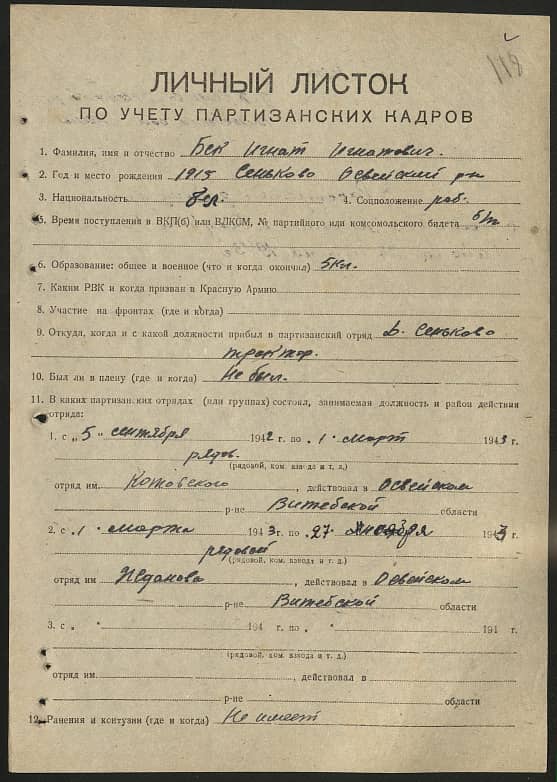 118
ЛИЧНЫЙ ЛИСТОК
ПО УЧЕТУ ПАРТИЗАНСКИХ КАДРОВ
1. Фамилия, имя и отчество Бек Игнат Игнатович.
2. Год и место рождения 1915 Сеньково Освейский р-н
3. Национальность бел. 4. Соцположение раб.
5. Время поступления в ВКП(б) или ВЛКСМ, № партийного или комсомольского билета б/п
6. Образование: общее и военное (что и когда окончил) 5кл.
7. Каким РВК и когда призван в Красную Армию
8. Участие на фронтах (где и когда)
9. Откуда, когда и с какой должности прибыл в партизанский отряд Д. Сеньково
10. Был ли в плену (где и когда) Не был.
11. В каких партизанских отрядах (или группах) состоял, занимаемая должность и район действия
отряда:
1. с „5" сентября 1942 г. по „1" март 1943 г.
рядов.
(рядовой, ком. взвода и т. д.)
отряд им. Котовского, действовал в Освейском
р-не Витебской области
2. с „1" марта 1943 г. по „27" 1943 г.
рядовой
(рядовой, ком. взвода и т. д.)
отряд им Жданова, действовал в Освейском
р-не Витебской области
3. с „ " 194 г. по „ " 194 г.
(рядовой, ком. взвода и т. д.)
отряд им., действовал в
р-не области
12. Ранения и контузии (где и когда) Не имеет